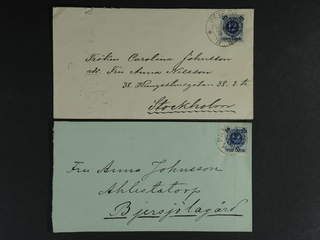 Fröken Carolina Johnsson
adr. Fru Anna Nilsson
38 Kungsholmsgatan 38. 2 tr
Stockholm
Fru Anna Johnsson
Ahlstatorp
Bjersjölagård